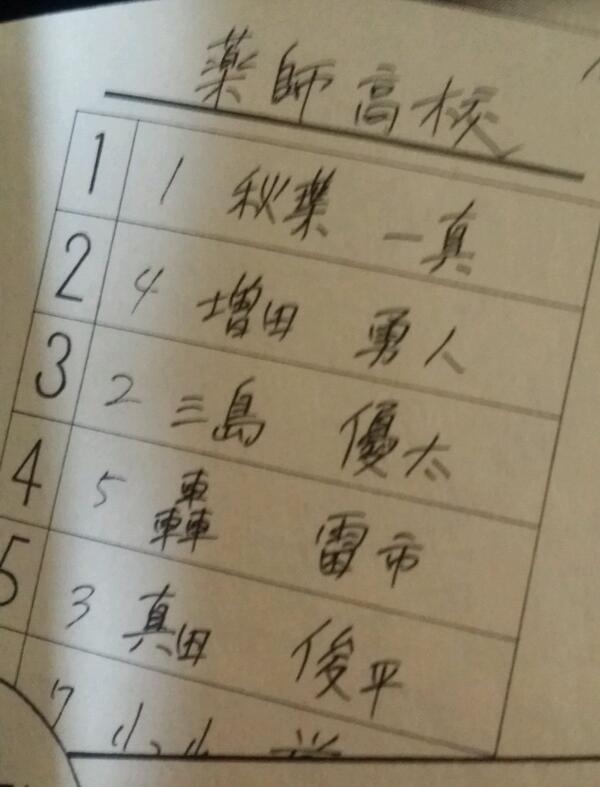 薬師高校
1 1 秋葉 一真
2 4 増田 勇人
3 2 三島 優太
4 5 轟 雷市
5 3 真田 俊平
7